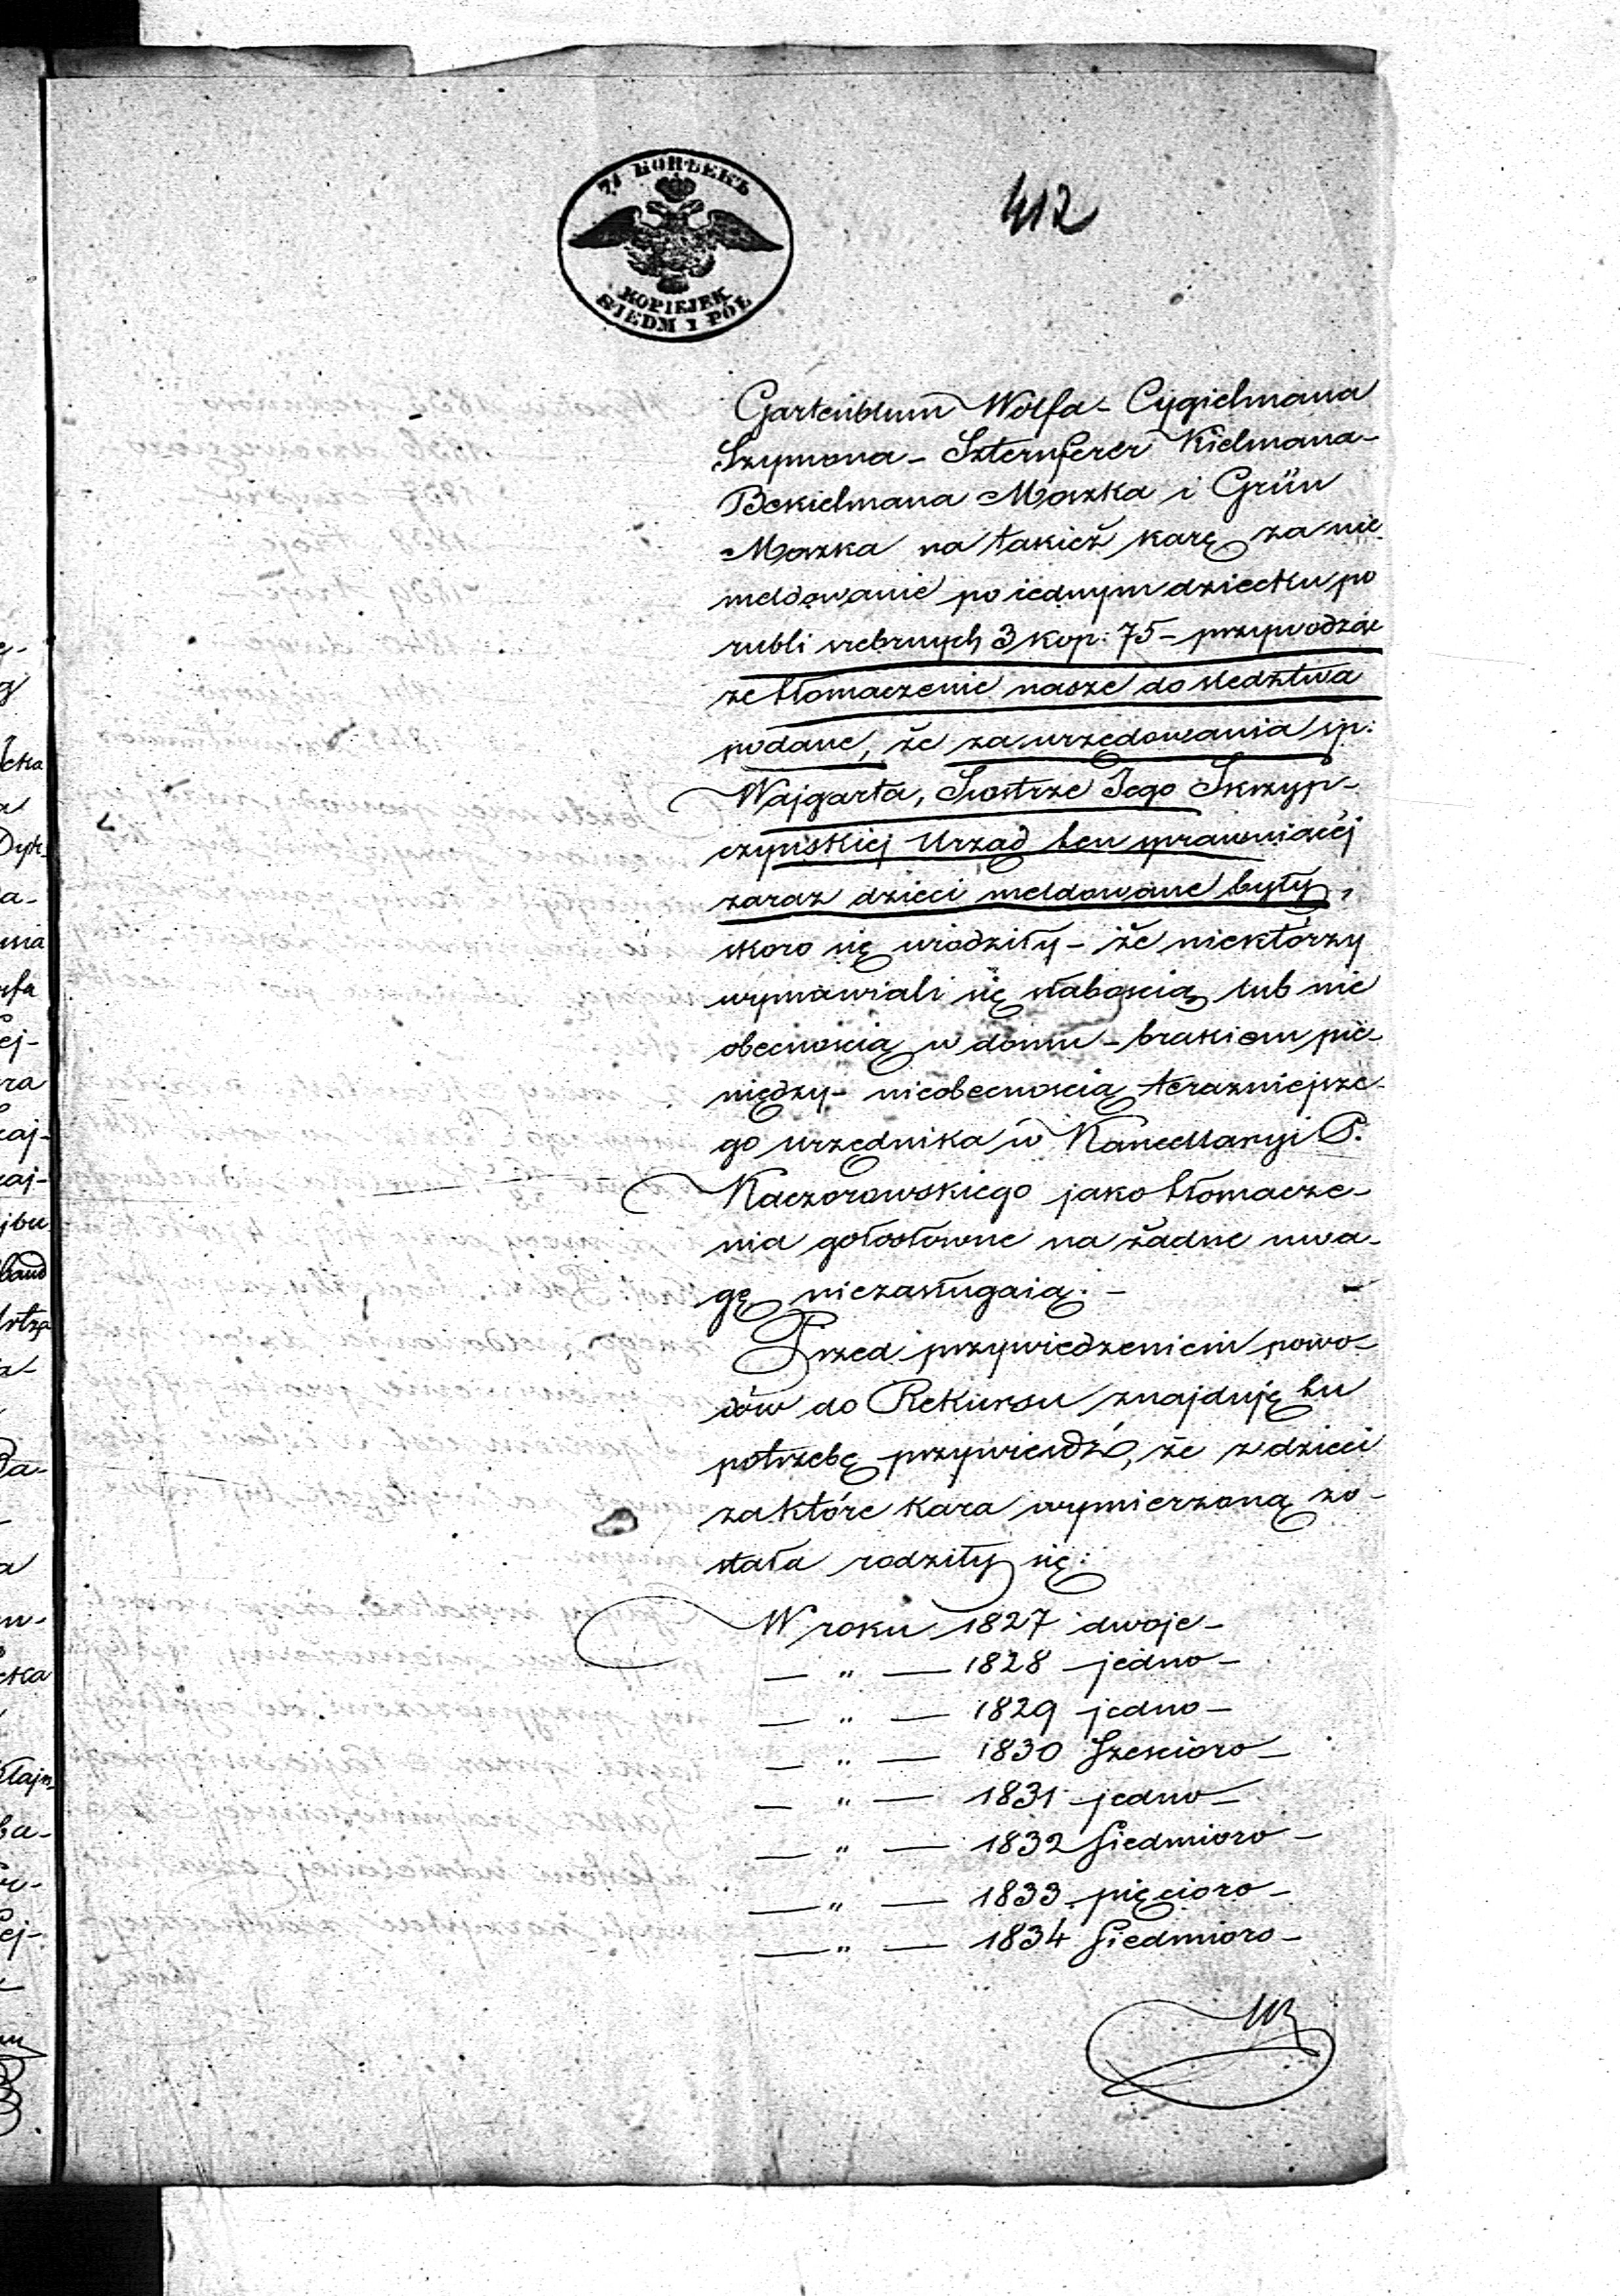 7½ КОПѢЕКЪ
KOPIEJEK
SIEDM I PÓŁ
412
Gartenblum Wolfa - Cygielmana
Szymona - Szternferer Kielmana -
Bekielmana Moszka i Grün
Moszka na takież karę za nie
meldowanie po iednym dziecku po
rubli srebrnych 3 kop: 75 - przywodząc
ze tłomaczenie nasze do sledztwa
podane, że za urzędowania sp:
Wajgarta, Siostrze Jego Skrzyp-
czyńskiej Urząd ten sprawuiącéj
zaraz dzieci meldowane były,
skoro się urodziły - że niektórzy
wymawiali się słabością lub nie
obecnością w domu - brakiem pie-
niędzy - nieobecnością terazniejsze-
go urzędnika w Kancellaryi P.
Kaczorowskiego jako tłomacze-
nia gołosłowne na żadne uwa-
gę niezasługaią. -
Przed przywiedzeniem powo-
dów do Rekursu znajduję tu
potrzebę przywieść, że z dzieci
za które kara wymierzoną zo-
stała rodziły się:
W roku 1827 dwoje -
— " — 1828 jedno -
— " — 1829 jedno -
— " — 1830 Sześcioro -
— " — 1831 jedno -
— " — 1832 Siedmioro -
— " — 1833 pięcioro -
— " — 1834 Siedmioro -